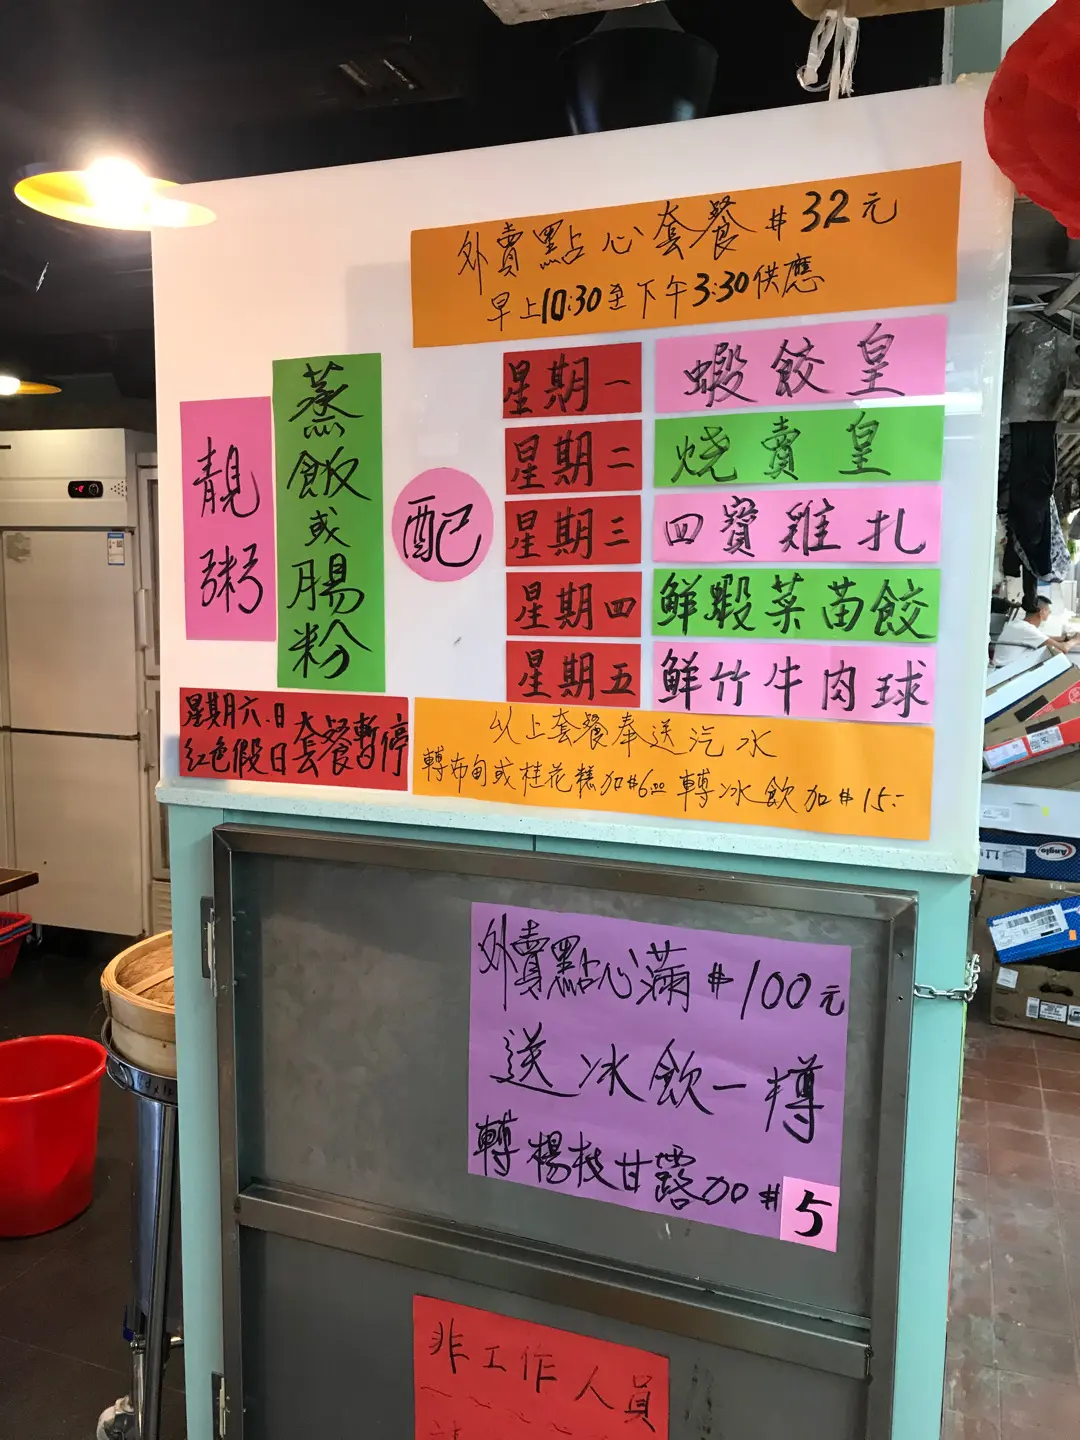 外賣點心套餐 $32元
早上10:30至下午3:30供應
靚粥
蒸飯或腸粉
配
星期一 蝦餃皇
星期二 烧賣皇
星期三 四寶雞扎
星期四 鮮蝦菜苗餃
星期五 鮮竹牛肉球
星期六.日
红色假日套餐暫停
以上套餐奉送汽水
轉布甸或桂花糕加$6.00 轉冰飲加$15.-
外賣點心滿$100元
送冰飲一樽
轉楊枝甘露加$5
非工作人員
Anglo